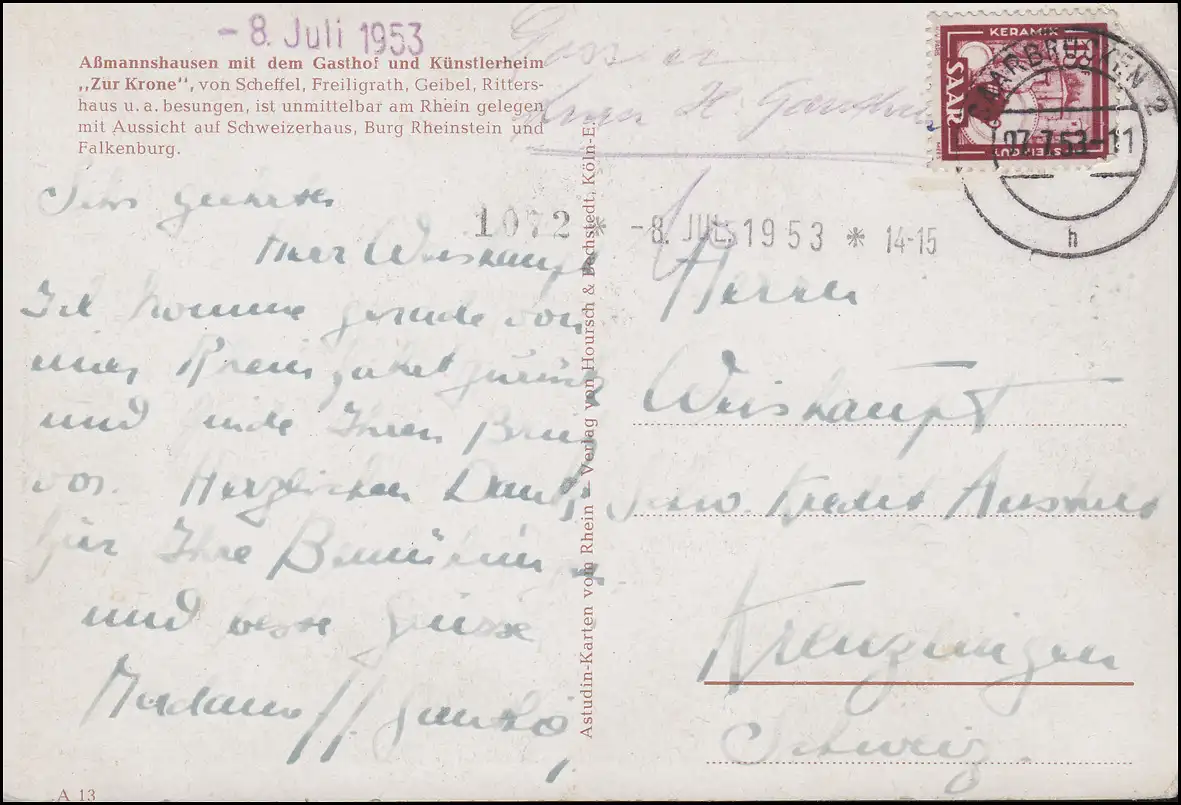 - 8. Juli 1953
Aßmannshausen mit dem Gasthof und Künstlerheim
„Zur Krone", von Scheffel, Freiligrath, Geibel, Ritters-
haus u. a. besungen, ist unmittelbar am Rhein gelegen
mit Aussicht auf Schweizerhaus, Burg Rheinstein und
Falkenburg.
Sehr geehrter
Herr Weishaupt
Ich komme gerade von
einer Rheinfahrt zurück
und finde Ihren Brief
vor. Herzlichen Dank
für Ihre
und beste Grüsse
Madame
A 13
Astudin-Karten vom Rhein — Verlag von Hoursch & Bechstedt, Köln-E.
Dossier
KERAMIK
SAAR
STEINGUT
18
SAARBRÜCKEN 2
07.7.53-11
h
1072 * -8. JUL. 1953 * 14-15
Herrn
Weishaupt
Schw. Kredit Anstalt
Kreuzlingen
Schweiz.